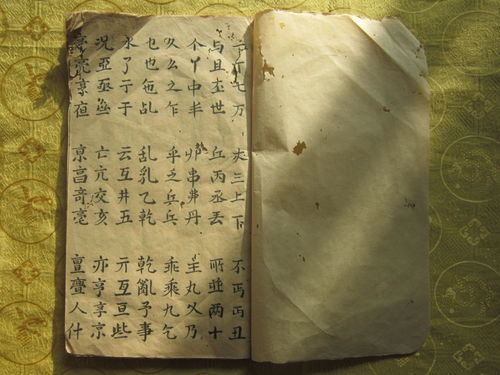 丁七万丈三上下不丏丑
与且世丘丙丞丟所並两十
个丫中丰丱串丹主丸乂乃
久么之乍乎乏乒乓乖乘九乞
乜也乱乱乳乙乾乾亂予事
了亍于云互井五亓互亘些
况亞亟亡亢交亥亦亨享京
亮京亱京亶亹人什